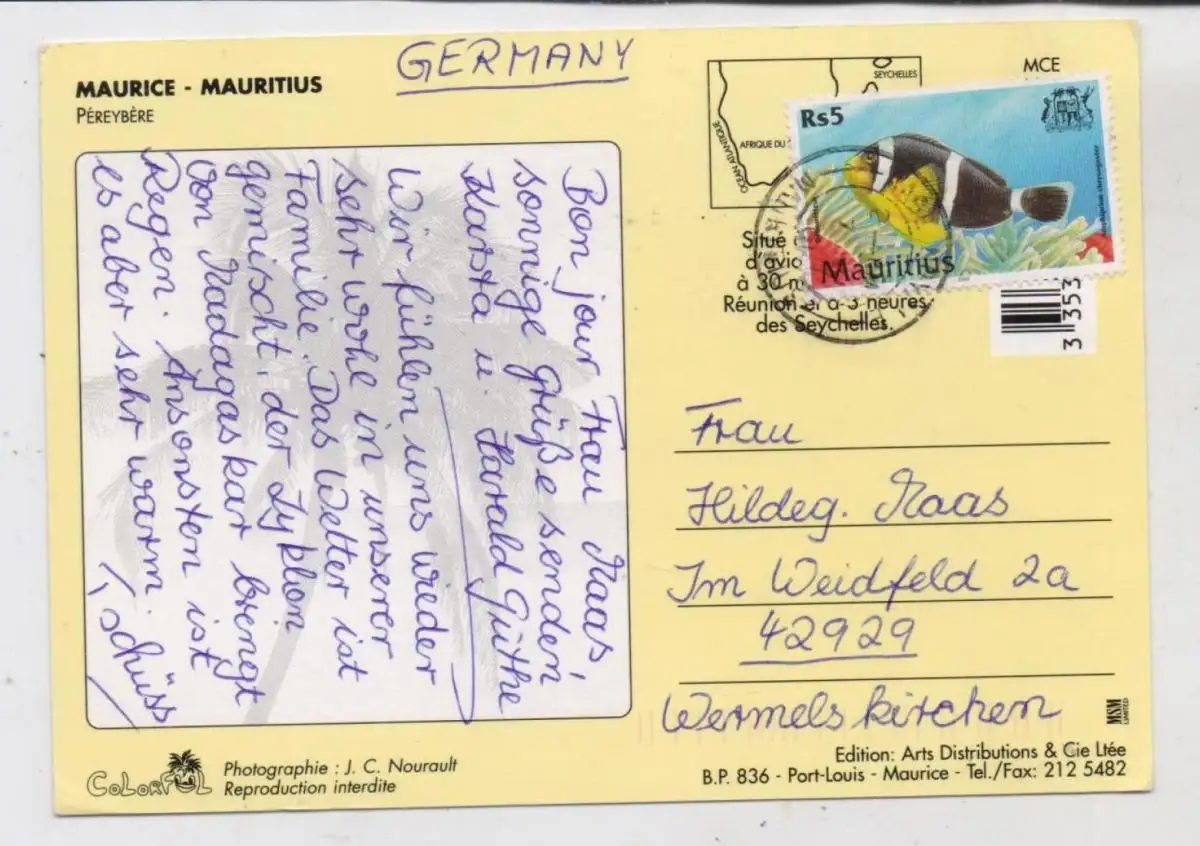 GERMANY
MAURICE - MAURITIUS
PÉREYBÈRE
Bon jour Frau Maas,
sonnige Grüße senden
Karsta u. Harald Güthe
Wir fühlen uns wieder
sehr wohl in unserer
Familie. Das Wetter ist
gemischt, der Zyklon
von Madagaskar bringt
Regen. Ansonsten ist
es aber sehr warm.
Tschüss
SEYCHELLES
AFRIQUE DU
OCÉAN ATLANTIQUE
MCE
Rs5
Mauritius
Situé
d'avio
à 30 m
Réunion et à 3 heures
des Seychelles.
3 353
Frau
Hildeg. Maas
Im Weidfeld 2a
42929
Wermelskirchen
MSM
LIMITED
COLORFUL
Photographie : J. C. Nourault
Reproduction interdite
Edition: Arts Distributions & Cie Ltée
B.P. 836 - Port-Louis - Maurice - Tel./Fax: 212 5482